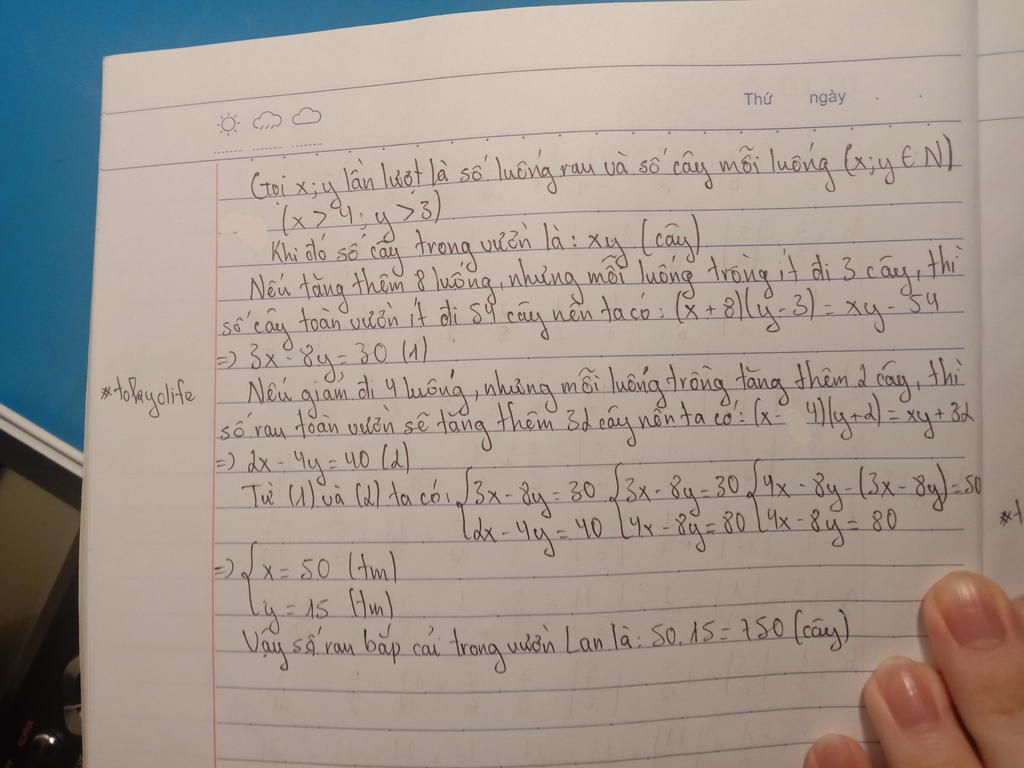 Thứ ngày
Gọi x; y lần lượt là số luống rau và số cây mỗi luống (x; y ∈ N)
(x > 4; y > 3)
Khi đó số cây trong vườn là: xy (cây)
Nếu tăng thêm 8 luống, nhưng mỗi luống trồng ít đi 3 cây, thì
số cây toàn vườn ít đi 54 cây nên ta có: (x + 8)(y - 3) = xy - 54
=> 3x - 8y = 30 (1)
*toRayolife
Nếu giảm đi 4 luống, nhưng mỗi luống trồng tăng thêm 2 cây, thì
số rau toàn vườn sẽ tăng thêm 32 cây nên ta có: (x - 4)(y+2) = xy + 32
=> 2x - 4y = 40 (2)
Từ (1) và (2) ta có: {3x - 8y = 30 {3x - 8y = 30 {4x - 8y - (3x - 8y) = 50
{2x - 4y = 40 {4x - 8y = 80 {4x - 8y = 80
=> {x = 50 (tm)
{y = 15 (tm)
Vậy số rau bắp cải trong vườn Lan là: 50.15 = 750 (cây)